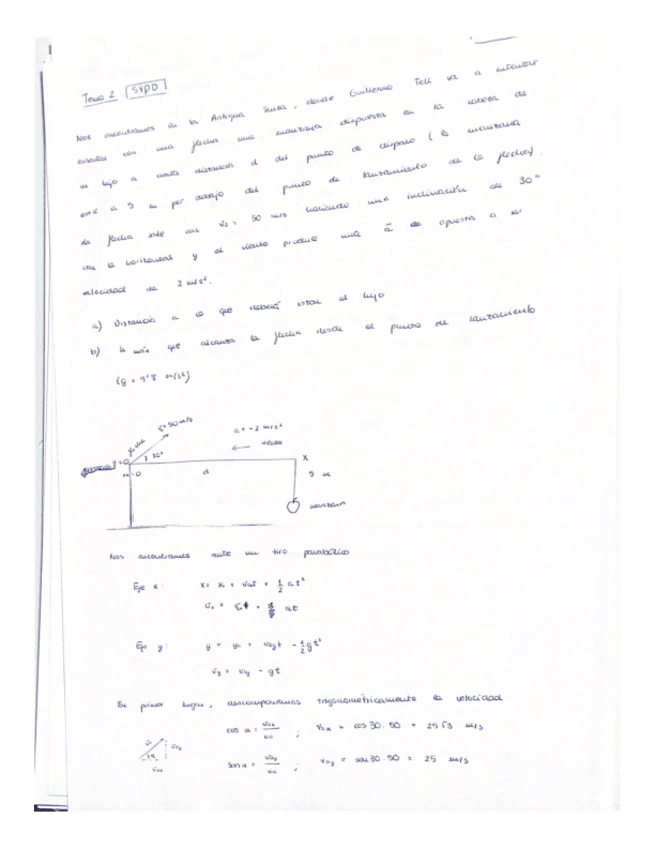 Tema 2 SYPD
Nos encontramos en la Antigua Suiza, donde Guillermo Tell va a intentar
acertar con una flecha una manzana dispuesta en la cabeza de
su hijo a cierta distancia d del punto de disparo (la manzana
está a 5 m por debajo del punto de lanzamiento de la flecha).
La flecha sale con v₀ = 50 m/s haciendo una inclinación de 30°
con la horizontal y el viento produce una a de opuesta a su
velocidad de 2 m/s².
a) Distancia a la que deberá estar el hijo
b) h máx que alcanza la flecha desde el punto de lanzamiento
(g = 9'8 m/s²)
v = 50 m/s
a = -2 m/s²
30°
x
d
5 m
manzana
Nos encontramos ante un tiro parabólico
Eje x: x = x₀ + v₀ₓt + 1/2 at²
Eje y: y = y₀ + v₀yt - 1/2 gt²
vy = v₀y - gt
En primer lugar, descomponemos trigonométricamente la velocidad
cos α = v₀ₓ/v₀ ; v₀ₓ = cos 30 · 50 = 25√3 m/s
sen α = v₀y/v₀ ; v₀y = sen 30 · 50 = 25 m/s